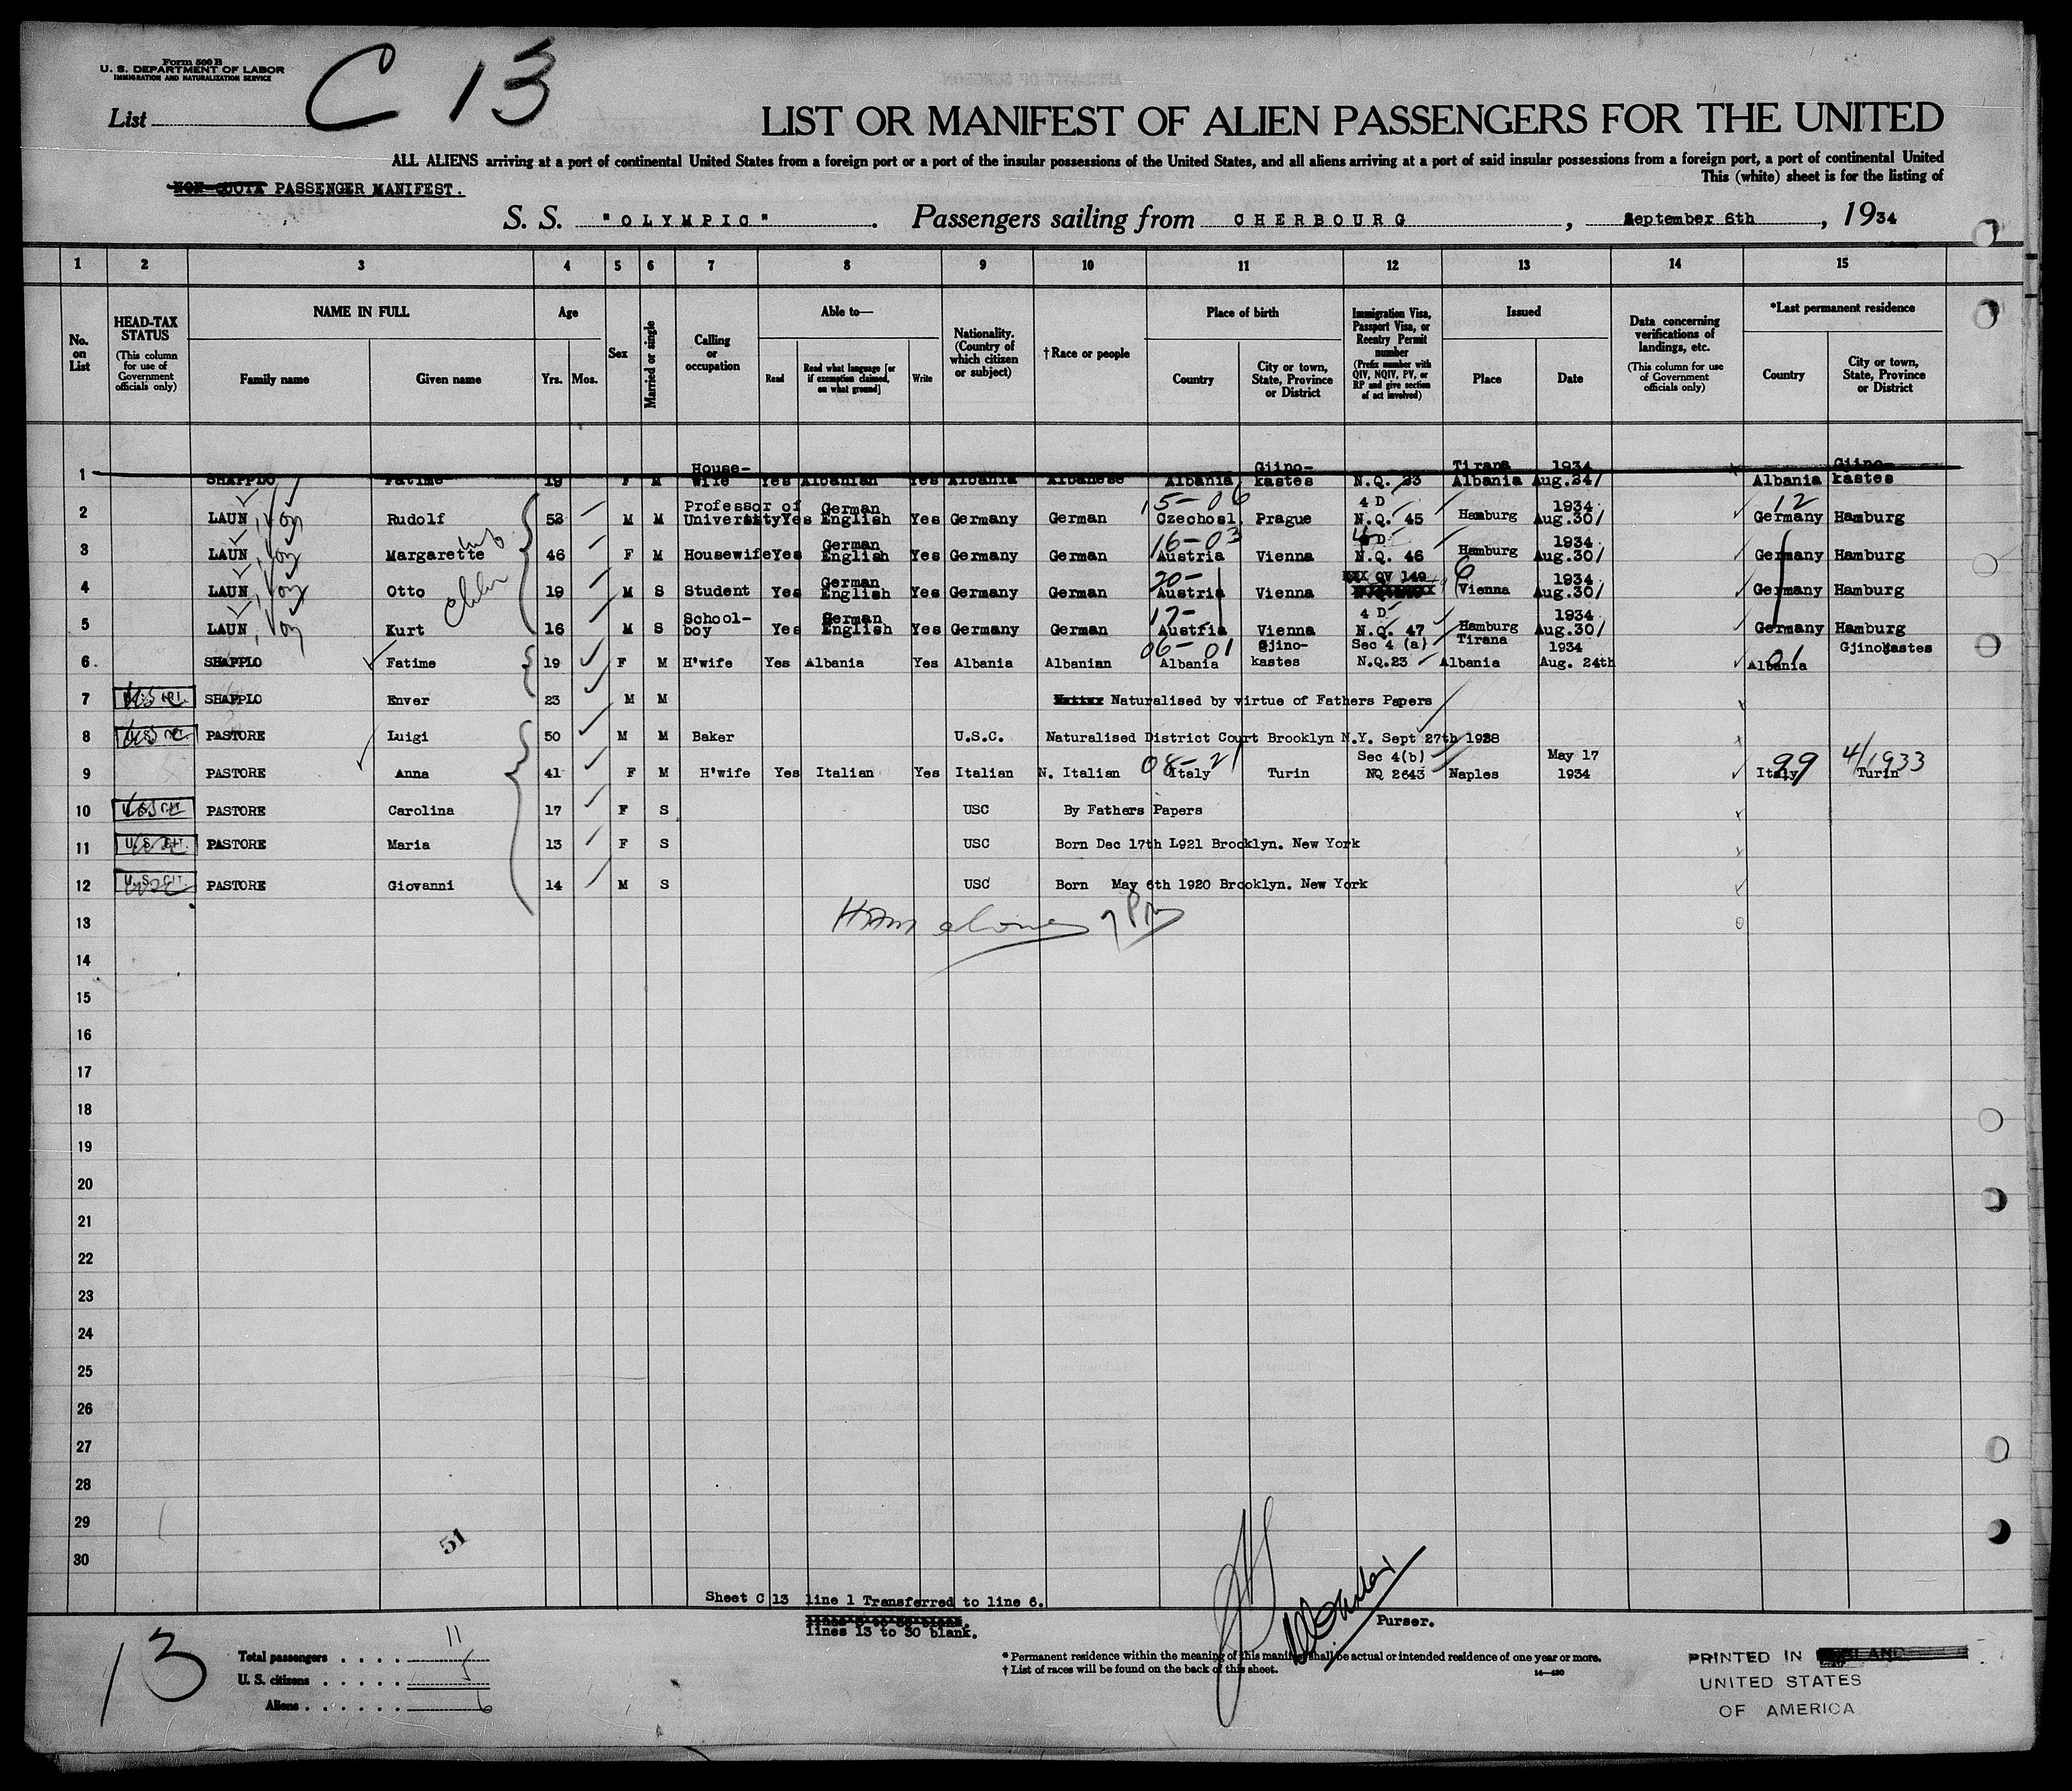 Form 500 B
U. S. DEPARTMENT OF LABOR
IMMIGRATION AND NATURALIZATION SERVICE
List C 13
LIST OR MANIFEST OF ALIEN PASSENGERS FOR THE UNITED
ALL ALIENS arriving at a port of continental United States from a foreign port or a port of the insular possessions of the United States, and all aliens arriving at a port of said insular possessions from a foreign port, a port of continental United
This (white) sheet is for the listing of
NON-QUOTA PASSENGER MANIFEST.
S. S. "OLYMPIC". Passengers sailing from CHERBOURG, September 6th, 1934
1 2 3 4 5 6 7 8 9 10 11 12 13 14 15
No. on List
HEAD-TAX STATUS (This column for use of Government officials only)
NAME IN FULL
Family name
Given name
Age
Yrs. Mos.
Sex
Married or single
Calling or occupation
Able to—
Read
Read what language [or if exemption claimed, on what ground]
Write
Nationality. (Country of which citizen or subject)
†Race or people
Place of birth
Country
City or town, State, Province or District
Immigration Visa, Passport Visa, or Reentry Permit number (Prefix number with QIV, NQIV, PV, or RP and give section of act involved)
Issued
Place
Date
Data concerning verifications of landings, etc. (This column for use of Government officials only)
*Last permanent residence
Country
City or town, State, Province or District
1 SHAPPLO Fatime 19 F M House-wife Yes Albanian Yes Albania Albanese Albania Gjino-kastes N.Q. 23 Tirana Albania 1934 Aug.24/ Albania Gjino-kastes
15-06 12
2 LAUN, Von Rudolf 52 M M Professor of University Yes German English Yes Germany German Czechosl. Prague 4 D N.Q. 45 Hamburg 1934 Aug.30/ Germany Hamburg
16-03
3 LAUN, Von Margarette 46 F M Housewife Yes German English Yes Germany German Austria Vienna 4 D N.Q. 46 Hamburg 1934 Aug.30/ Germany Hamburg
20-
4 LAUN, Von Otto 19 M S Student Yes German English Yes Germany German Austria Vienna QV 149 Vienna 1934 Aug.30/ Germany Hamburg
17-
5 LAUN, Von Kurt 16 M S School-boy Yes German English Yes Germany German Austria Vienna 4 D N.Q. 47 Hamburg 1934 Aug.30/ Germany Hamburg
06-01 01
6 SHAPPLO Fatime 19 F M H'wife Yes Albania Yes Albania Albanian Albania Gjino-kastes Sec 4 (a) N.Q.23 Tirana Albania 1934 Aug. 24th Albania Gjinokastes
7 U.S. CIT. SHAPPLO Enver 23 M M Naturalised by virtue of Fathers Papers
8 U.S. CIT. PASTORE Luigi 50 M M Baker U.S.C. Naturalised District Court Brooklyn N.Y. Sept 27th 1928
08-21 99 4/1933
9 PASTORE Anna 41 F M H'wife Yes Italian Yes Italian N. Italian Italy Turin Sec 4(b) NQ 2643 Naples May 17 1934 Italy Turin
10 U.S. CIT. PASTORE Carolina 17 F S USC By Fathers Papers
11 U. S. CIT. PASTORE Maria 13 F S USC Born Dec 17th L921 Brooklyn. New York
12 U. S. CIT. PASTORE Giovanni 14 M S USC Born May 6th 1920 Brooklyn. New York
13
14
15
16
17
18
19
20
21
22
23
24
25
26
27
28
29
30
51
Sheet C 13 line 1 Transferred to line 6.
lines 13 to 30 blank.
Purser.
13
Total passengers . . . . 11
U. S. citizens . . . . . 5
Aliens . . . . . . 6
* Permanent residence within the meaning of this manifest shall be actual or intended residence of one year or more.
† List of races will be found on the back of this sheet.
14—430
PRINTED IN
UNITED STATES
OF AMERICA